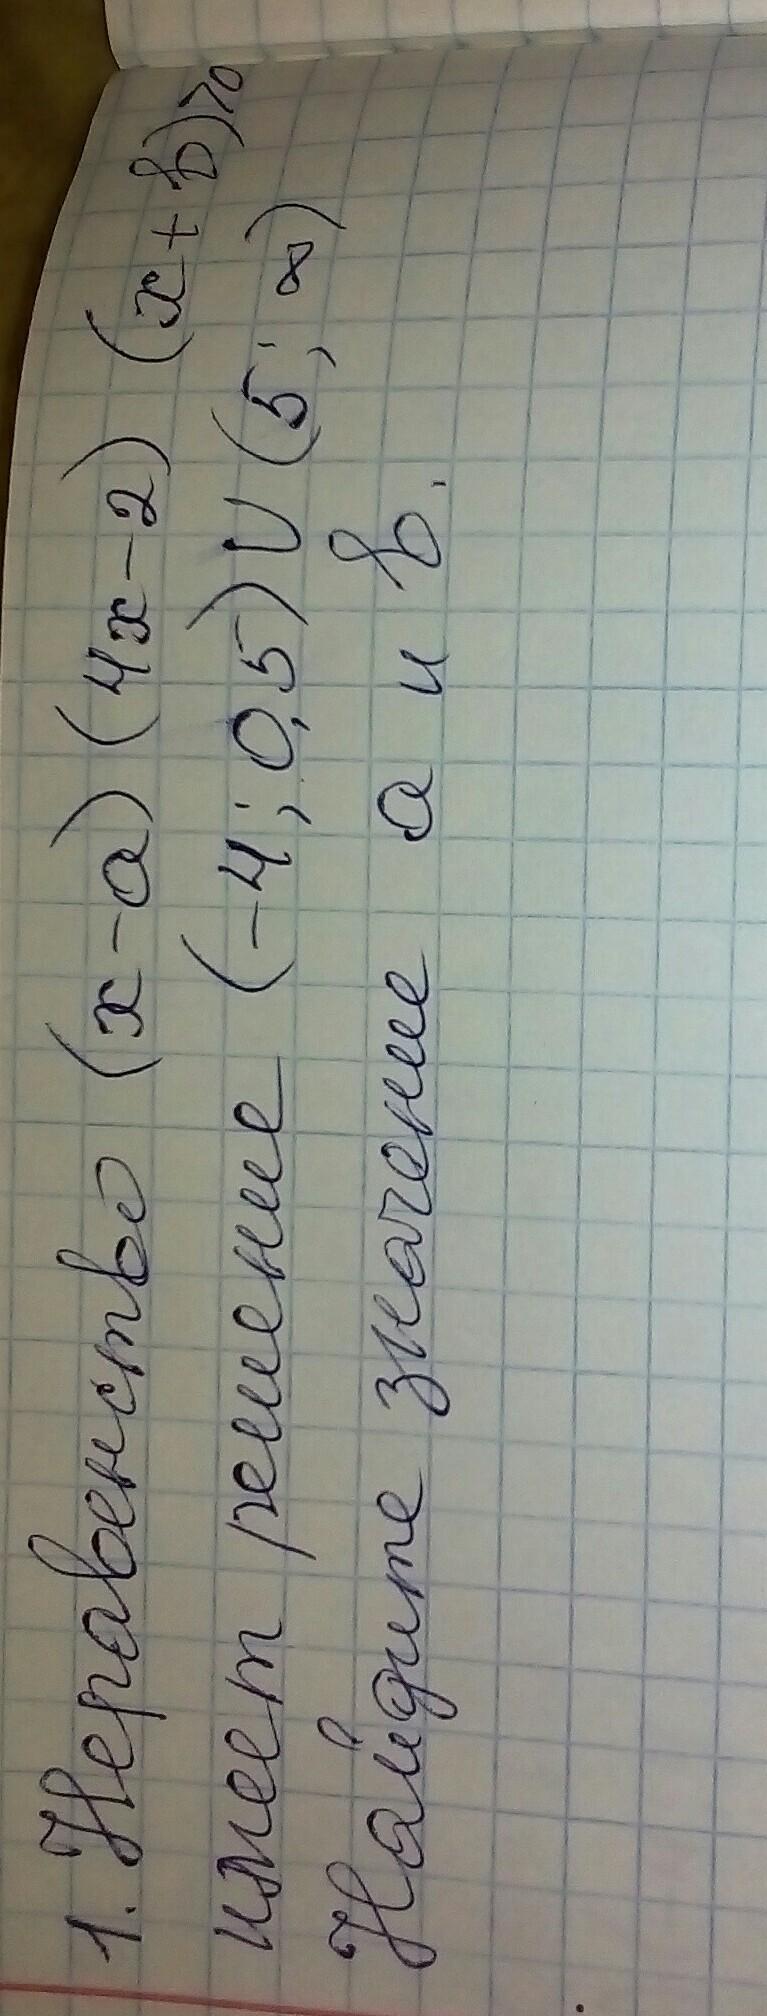 1. Неравенство (x-a)(4x-2)(x+b)>0
имеет решение (-4; 0,5)∪(5; ∞)
Найдите значение a и b.